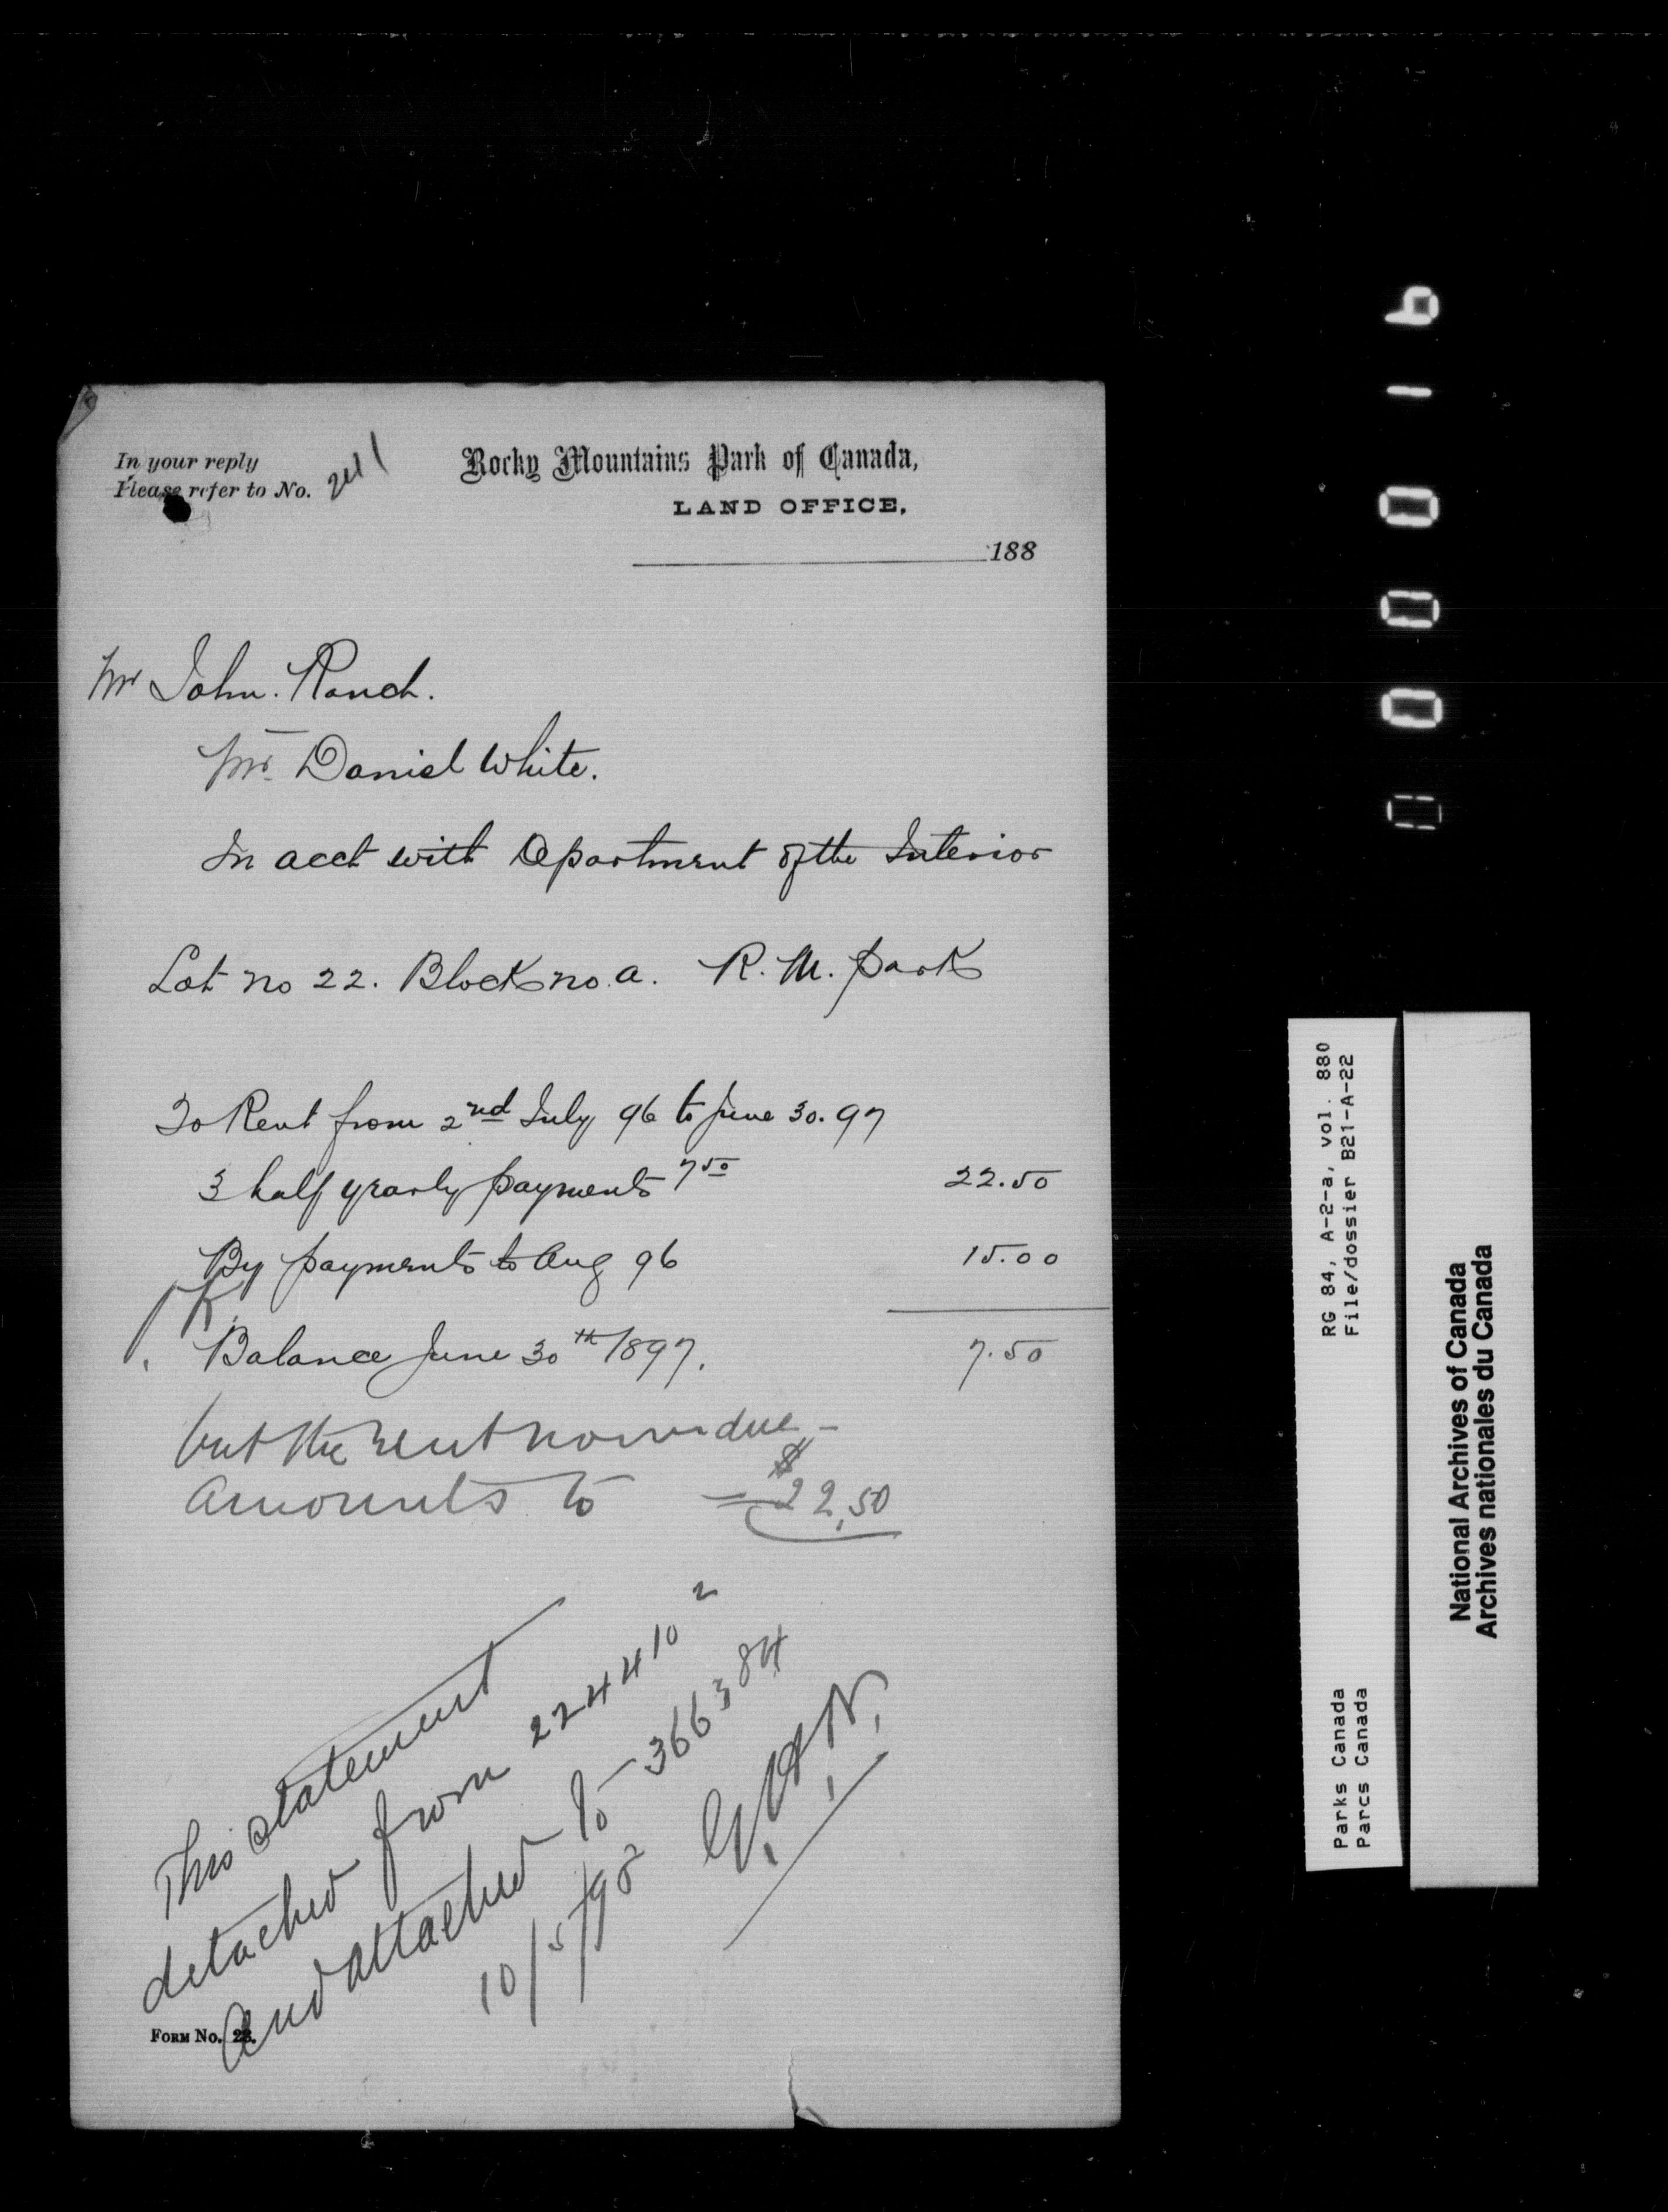 In your reply
Please refer to No. 241
Rocky Mountains Park of Canada,
LAND OFFICE,
188
Mr John. Ranch.
Mr. Daniel White.
In acct with Department of the Interior
Lot no 22. Block no. a. R. M. Park
To Rent from 2nd July 96 to June 30. 97
3 half yearly payments 7 50 22.50
By payments to Aug 96 15.00
Balance June 30th 1897. 7.50
but the rent now due -
amounts to = $22,50
This statement
detached from 224410 2
and attached to 366384
10/5/98
FORM No. 23.
000016
RG 84, A-2-a, vol. 880
File/dossier B21-A-22
Parks Canada
Parcs Canada
National Archives of Canada
Archives nationales du Canada